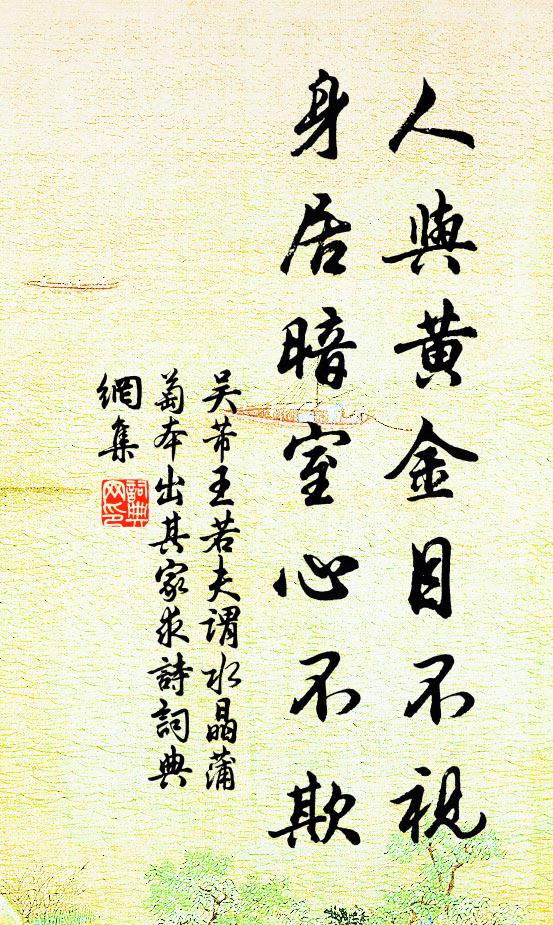 人與黃金目不視
身居暗室心不欺
吴芾王若夫謂水晶蒲
萄本出其家求詩詞典
網集
詞典
网印